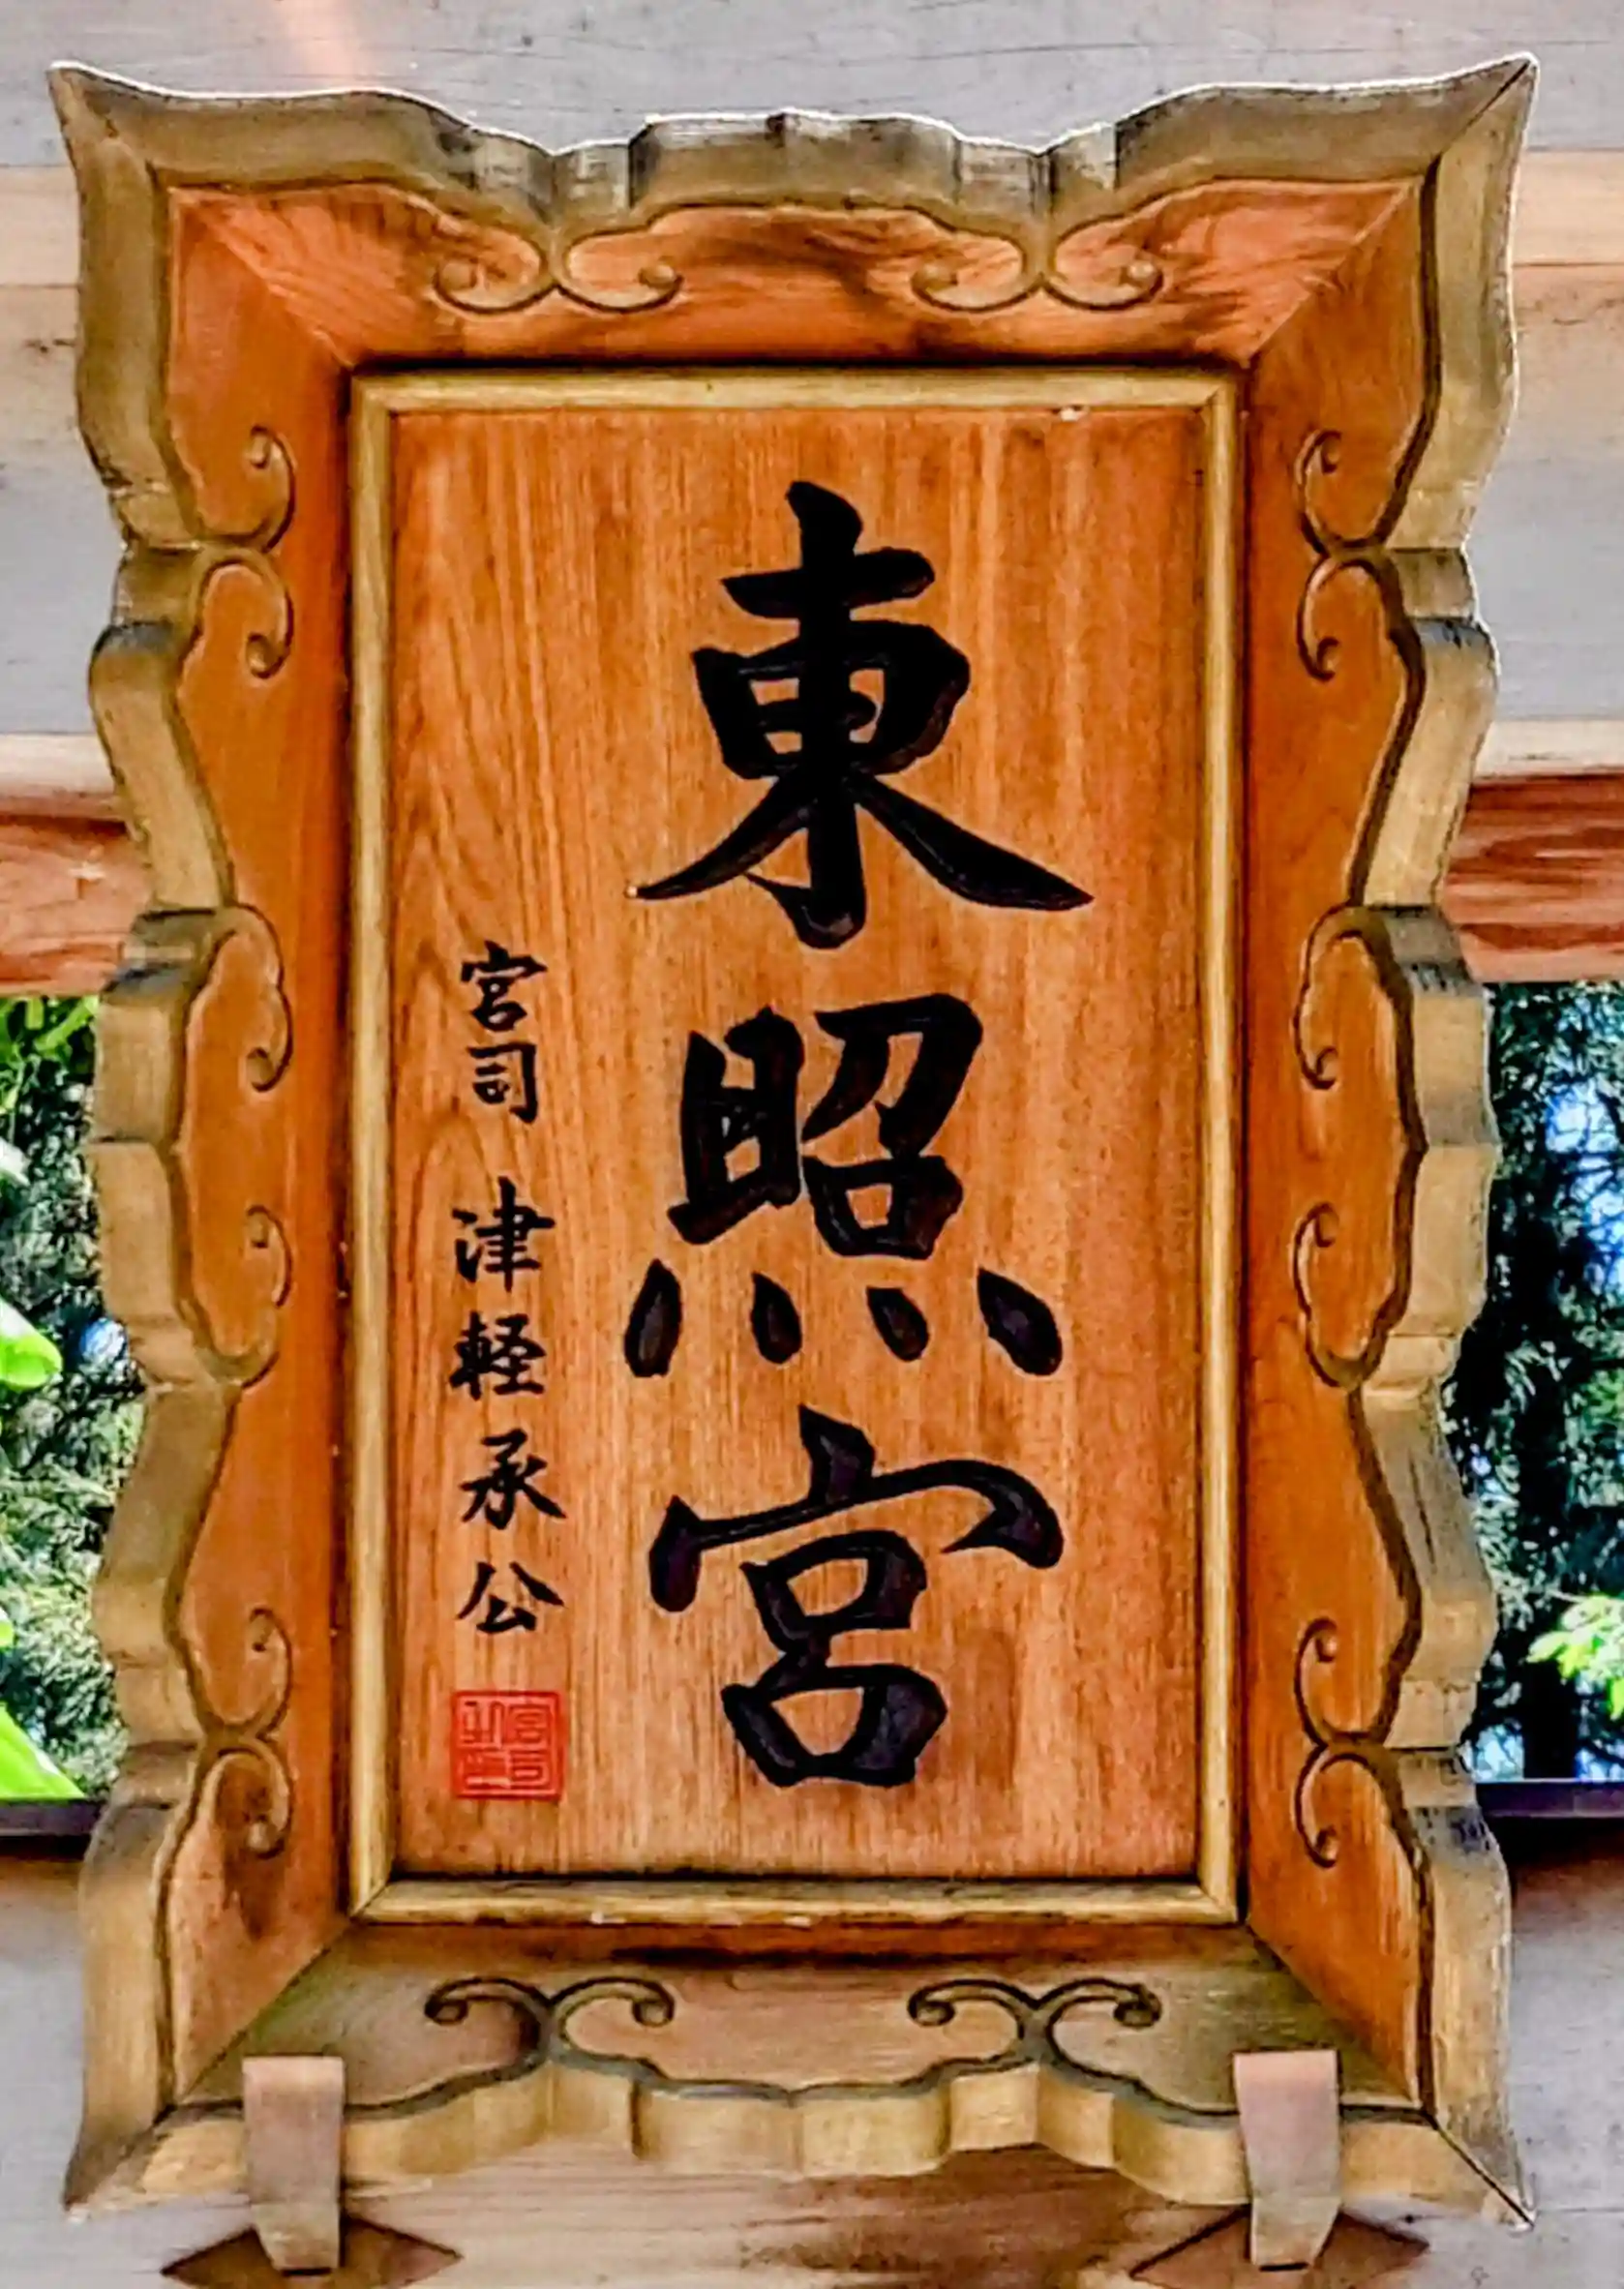 東照宮
宮司 津軽承公